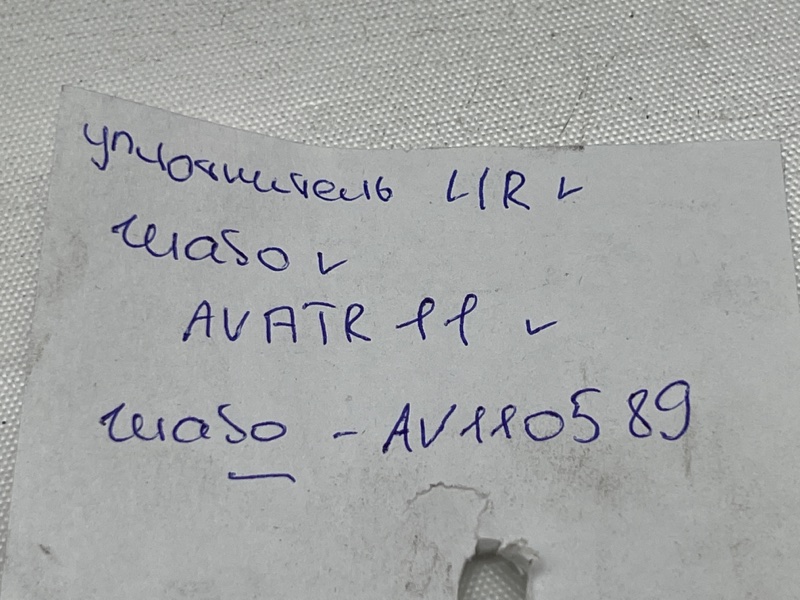 уплотнитель L/R ✓
жабо ✓
AVATR 11 ✓
жабо - AV110589